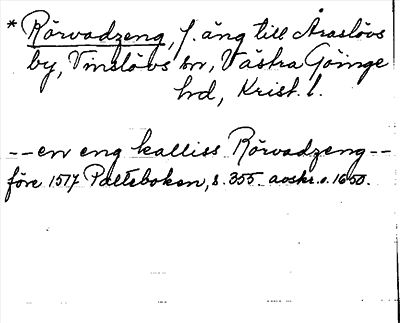 * Rörvadzeng, f. äng till Araslövs
by, Vinslövs sn, Västra Göinge
hd, Krist. l.
-- en eng kalliss Rörvadzeng --
före 1517 Palteboken, s. 355. avskr. o. 1650.